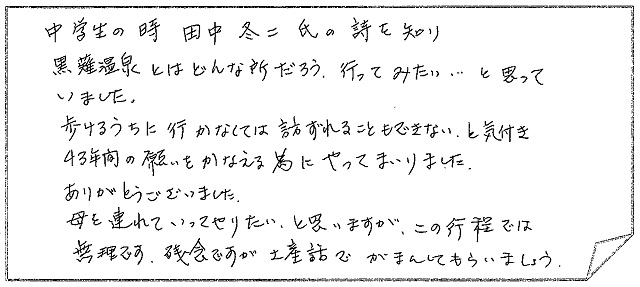 中学生の時 田中冬二氏の詩を知り
黒薙温泉とはどんな所だろう、行ってみたい…と思って
いました。
歩けるうちに行かなくては訪ずれることもできない、と気付き
43年間の願いをかなえる為にやってまいりました。
ありがとうございました。
母を連れていってやりたい、と思いますが、この行程では
無理です、残念ですが土産話でがまんしてもらいましょう。